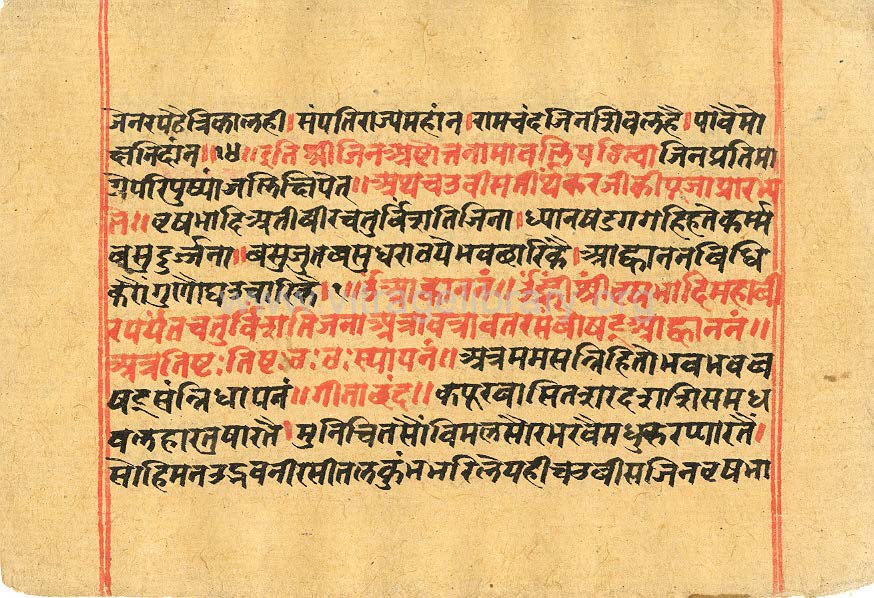 जेनरपढैत्रिकालही। संपतिराज्यमहांन। रामचंदजिनशिवलहै। पांवैमो
क्षनिदांन॥१४॥इति श्रीजिनअष्टोत्तनामावलिपठित्वाजिनप्रतिमा
ग्रेपरिपुष्पांजलिक्षिपेत॥अथचउवीसतीर्थंकरजीकीपूजाप्रारभ्य
ते॥ वृषभादिअतीवीरचतुर्विंशतिजिना। ध्यानषडगगहिहतेकर्म्म
वसुदुर्ज्जना। वसुजुतवसुधरावयेभवछारिकै। आह्वाननंविधि
करौंगुणौघउचारिकै १ आह्वाननं॥ ॐह्रीं श्रीवृषभादिमहावी
रपर्यंतचतुर्विंशतिजिनाअत्रावत्रावतरसंवौषट् आह्वाननं॥
अत्रतिष्टःतिष्टःठःठःस्थापनं॥ अत्रममसन्निहितोभवभवव
षट्संन्निधापनं॥गीताछंद॥ कपूरवासितशरदशशिसमध
वलहारतुषारतै। मुनिचितसौंविमलसौरभरवैमधुकरप्यारतैं।
सोहिमनउद्भवनीरसीतलकुंभभरिलेयहीचउवीसजिनवृषभा
www.vitragelibrary.org